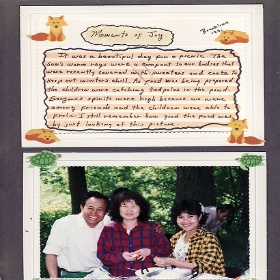 Moments of Joy
It was a beautiful day for a picnic. The
sun's warm rays were a compost to our bodies that
were recently covered with sweaters and coats to
keep out winter's chill. As food was being prepared
the children were catching tadpoles in the pond.
Everyone's spirits were high because we were
among friends and the children were able to
frolic. I still remember how good the food was
by just looking at this picture.